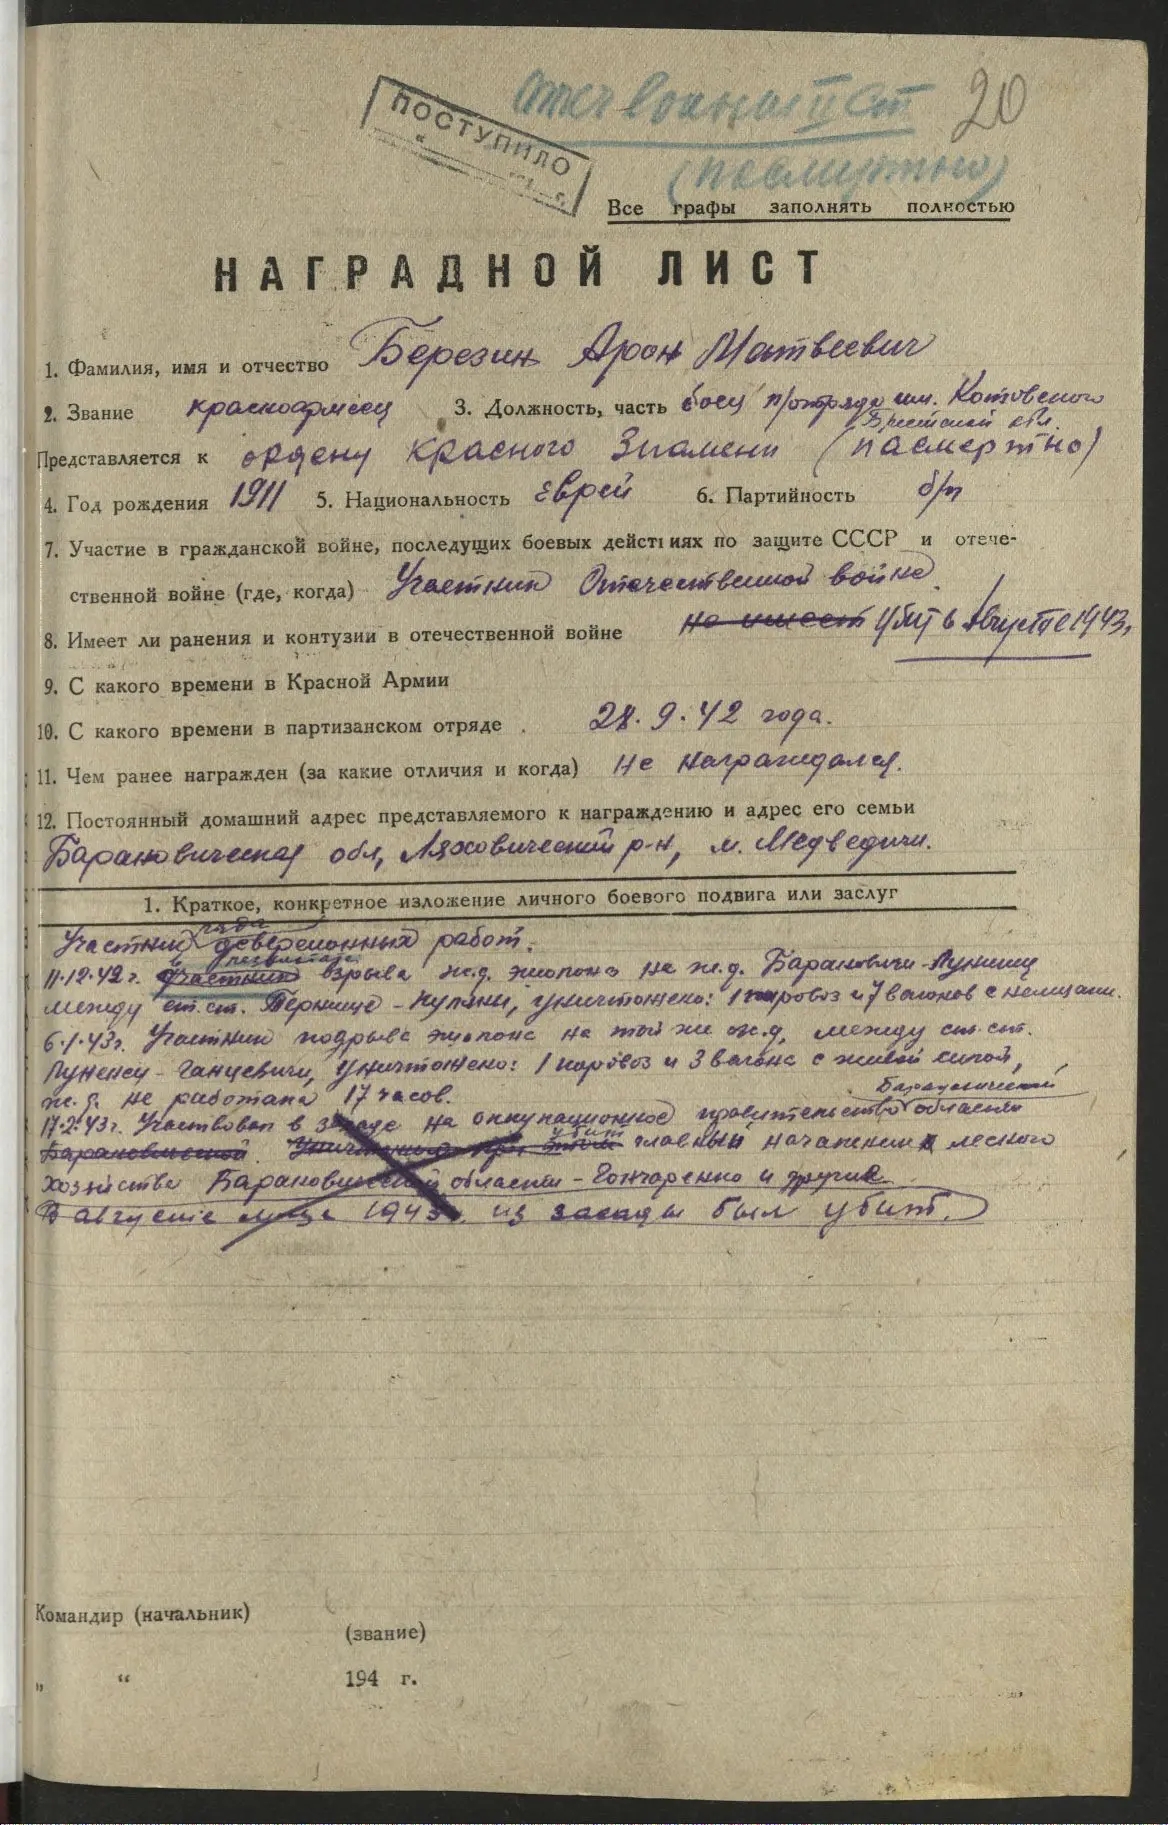 Отеч Войны II Ст
20
(посмертно)
ПОСТУПИЛО
"
г.
Все графы заполнять полностью
НАГРАДНОЙ ЛИСТ
1. Фамилия, имя и отчество Березин Арон Матвеевич
2. Звание красноармеец 3. Должность, часть боец п/отряда им. Котовского
Брестской обл.
Представляется к ордену Красного Знамени (пасмертно)
4. Год рождения 1911 5. Национальность еврей 6. Партийность б/п
7. Участие в гражданской войне, последущих боевых действиях по защите СССР и отече-
ственной войне (где, когда) Участник Отечественной войне
8. Имеет ли ранения и контузии в отечественной войне не имеет Убит в августе 1943г.
9. С какого времени в Красной Армии
10. С какого времени в партизанском отряде . 28.9.42 года.
11. Чем ранее награжден (за какие отличия и когда) Не награждался.
12. Постоянный домашний адрес представляемого к награждению и адрес его семьи
Барановическая обл, Ляховический р-н, м. Медведичи.
1. Краткое, конкретное изложение личного боевого подвига или заслуг
ряда
Участник деверсионных работ.
в результате
11.12.42г. Участник взрыва ж.д. эшолона на ж.д. Барановичи-Лунинец
между ст.ст. Люсино, уничтожено: 1 паровоз и 7 вагонов с немцами.
6.1.43г. Участник подрыва эшолона на той же ж.д, между ст.ст.
Ганцевичи, Уничтожено: 1 паровоз и 3 вагона с живой силой,
ж.д. не работала 17 часов.
Барановической
17.2.43г. Участвовал в засаде на оккупационное правительство области
убит
Барановичской. Уничтожено при этом главный начальник лесного
хозяйства Барановической области - Гончаренко и другие.
В августе м-це 1943г. из засады был убит.
Командир (начальник)
(звание)
" " 194 г.